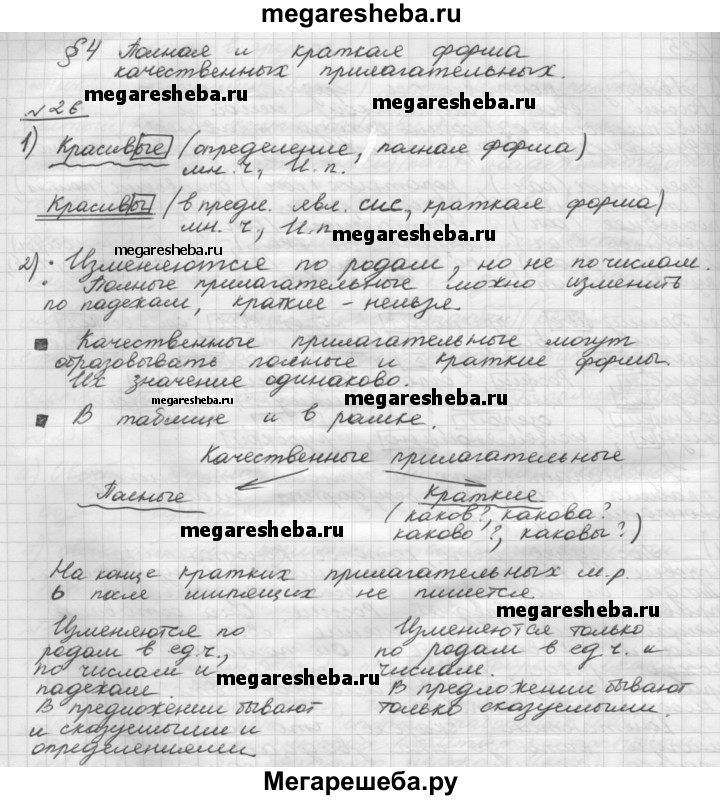 megaresheba.ru
§4 Полная и краткая форма
качественных прилагательных.
megaresheba.ru
megaresheba.ru
№26
1) Красивые (определение, полная форма)
мн. ч., И.п.
Красивы (в предл. явл. сис, краткая форма)
мн. ч., И.п.
megaresheba.ru
megaresheba.ru
2) • Изменяются по родам, но не по числам.
• Полные прилагательные можно изменить
по падежам, краткие – нельзя.
▪ Качественные прилагательные могут
образовывать полные и краткие формы.
Их значение одинаково.
megaresheba.ru
▪ В таблице и в рамке.
megaresheba.ru
Качественные прилагательные
Полные
Краткие
(каков?, какова?
каково?, каковы?)
megaresheba.ru
На конце кратких прилагательных м.р.
ь после шипящих не пишется
megaresheba.ru
Изменяются по
родам в ед.ч.,
по числам и
падежам.
В предложении бывают
и сказуемыми и
определениями
Изменяются только
по родам в ед ч. и
числам.
В предложении бывают
только сказуемыми.
megaresheba.ru
Мегарешеба.ру